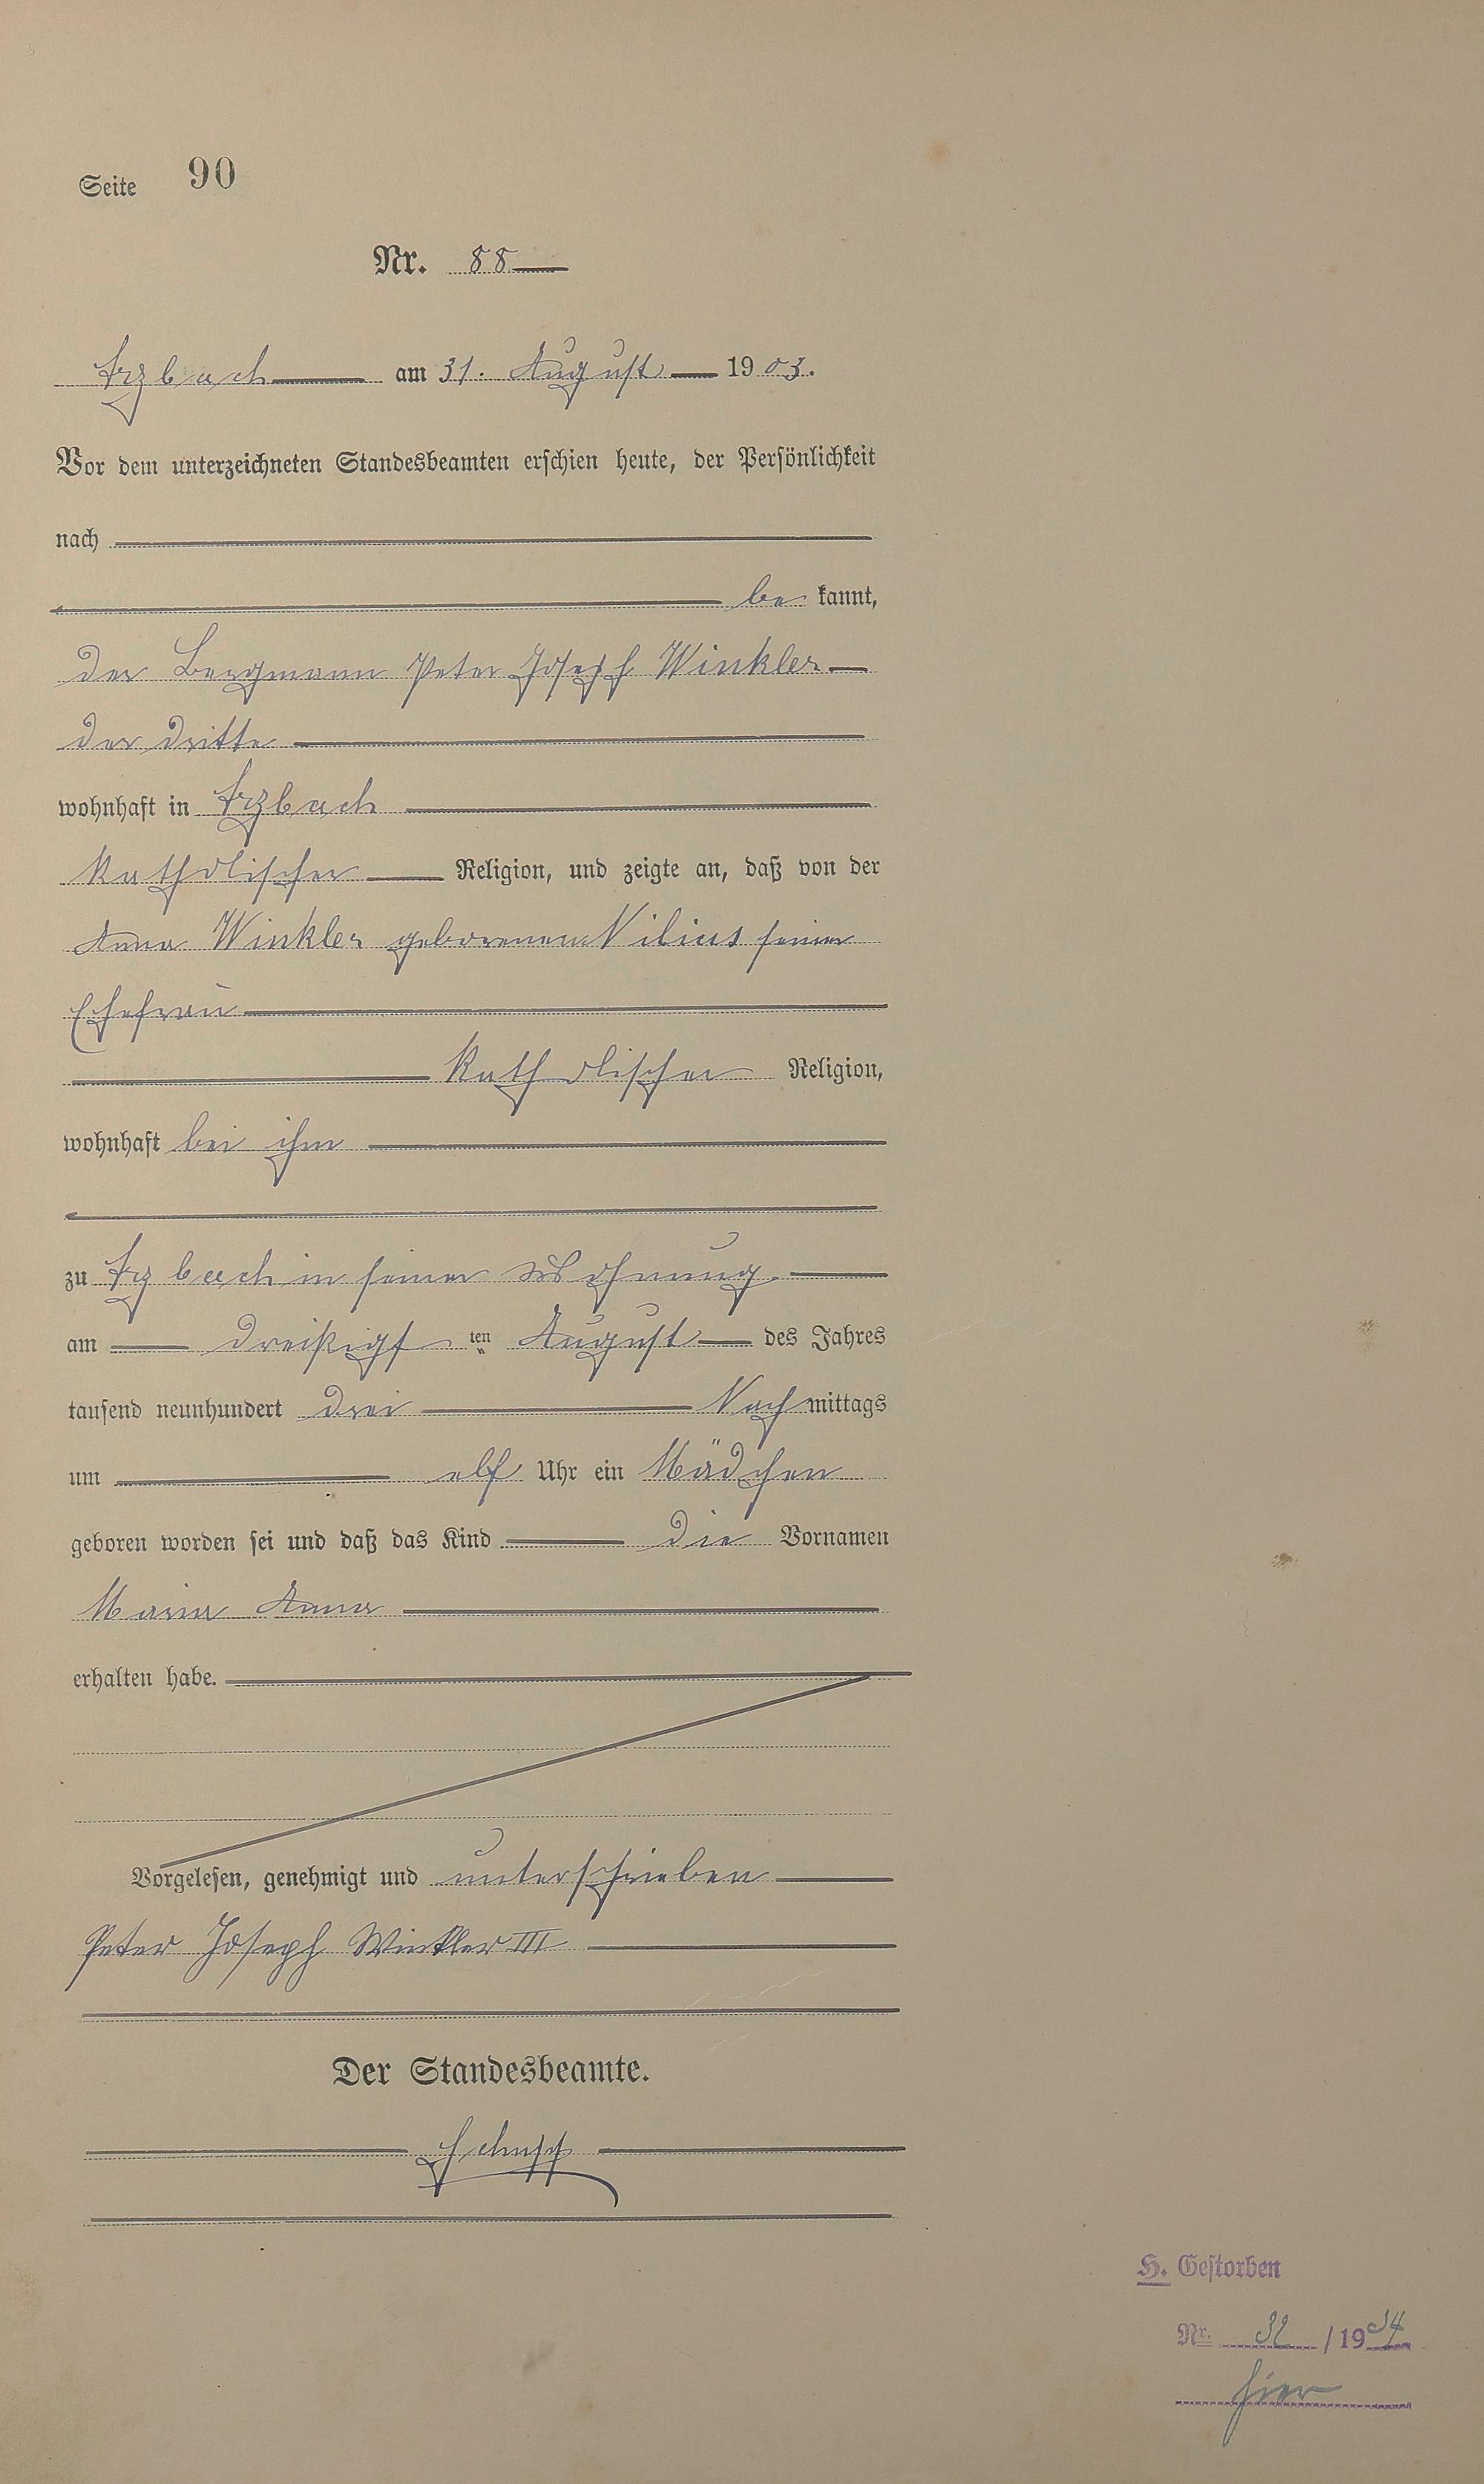 Seite 90
Nr. 88
Arzbach am 31. August 1903.
Vor dem unterzeichneten Standesbeamten erschien heute, der Persönlichkeit
nach
be kannt,
der Bergmann Peter Joseph Winkler
der dritte
wohnhaft in Arzbach
katholischer Religion, und zeigte an, daß von der
Anna Winkler geborenen Vilius seiner
Ehefrau
katholischer Religion,
wohnhaft bei ihm
zu Arzbach in seiner Wohnung
am dreißigst ten August des Jahres
tausend neunhundert drei Nachmittags
um elf Uhr ein Mädchen
geboren worden sei und daß das Kind die Vornamen
Maria Anna
erhalten habe.
Vorgelesen, genehmigt und unterschrieben
Peter Joseph Winkler III
Der Standesbeamte.
Schupp
H. Gestorben
Nr. 32 / 1934
hier